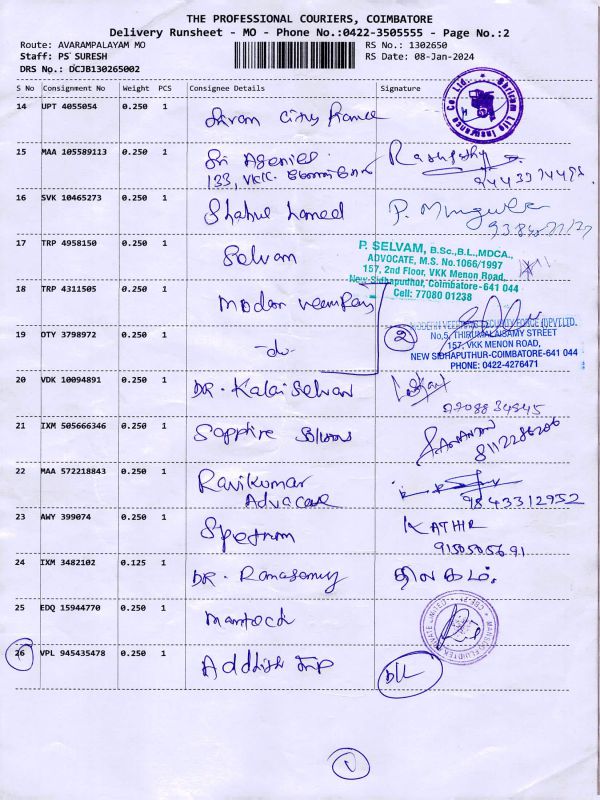 THE PROFESSIONAL COURIERS, COIMBATORE
Delivery Runsheet - MO - Phone No.:0422-3505555 - Page No.:2
Route: AVARAMPALAYAM MO RS No.: 1302650
Staff: PS SURESH RS Date: 08-Jan-2024
DRS No.: DCJB130265002
S No Consignment No Weight PCS Consignee Details Signature
14 UPT 4055054 0.250 1
Shriram Life Insurance Co Ltd.
15 MAA 105589113 0.250 1 Sri Agencies
133, VKK
16 SVK 10465273 0.250 1 Shahul Hameed
17 TRP 4958150 0.250 1 Selvam
P. SELVAM, B.Sc.,B.L.,MDCA.,
ADVOCATE, M.S. No.1066/1997
157, 2nd Floor, VKK Menon Road,
New Sidhapudhur, Coimbatore-641 044
Cell: 77080 01238
18 TRP 4311505 0.250 1 Modern
19 OTY 3798972 0.250 1 -do- 2
No.5, THIRUMALAISAMY STREET
157, VKK MENON ROAD,
NEW SIDHAPUTHUR-COIMBATORE-641 044
PHONE: 0422-4276471
20 VDK 10094891 0.250 1 DR. Kalaiselvan
21 IXM 505666346 0.250 1 Sapphire
8112286206
22 MAA 572218843 0.250 1 Ravikumar
Advocate
9843312952
23 AWY 399074 0.250 1 Spectrum KATHIR
9150505691
24 IXM 3482102 0.125 1 DR. Ramasamy திலகம்.
25 EDQ 15944770 0.250 1
26 VPL 945435478 0.250 1 DL
1